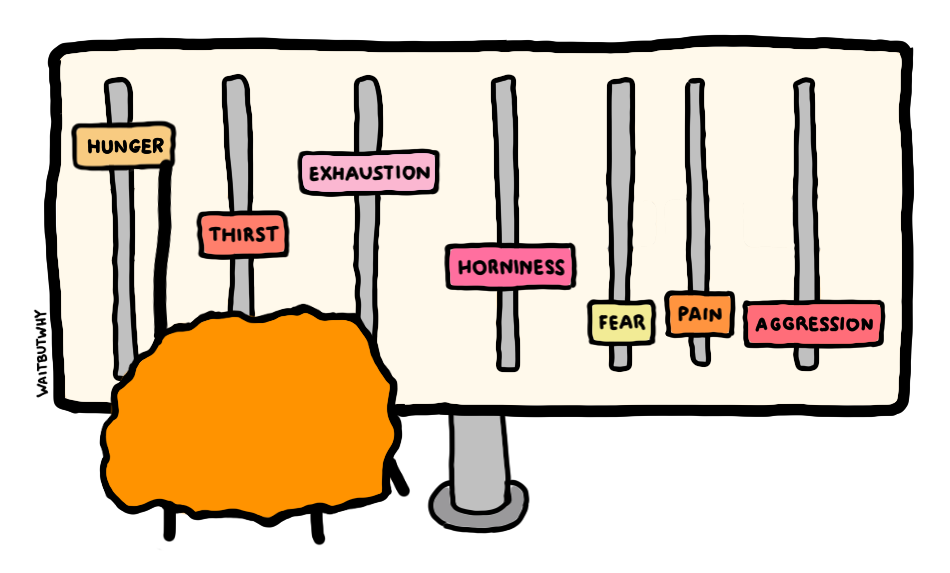 HUNGER
THIRST
EXHAUSTION
HORNINESS
FEAR
PAIN
AGGRESSION
WAITBUTWHY